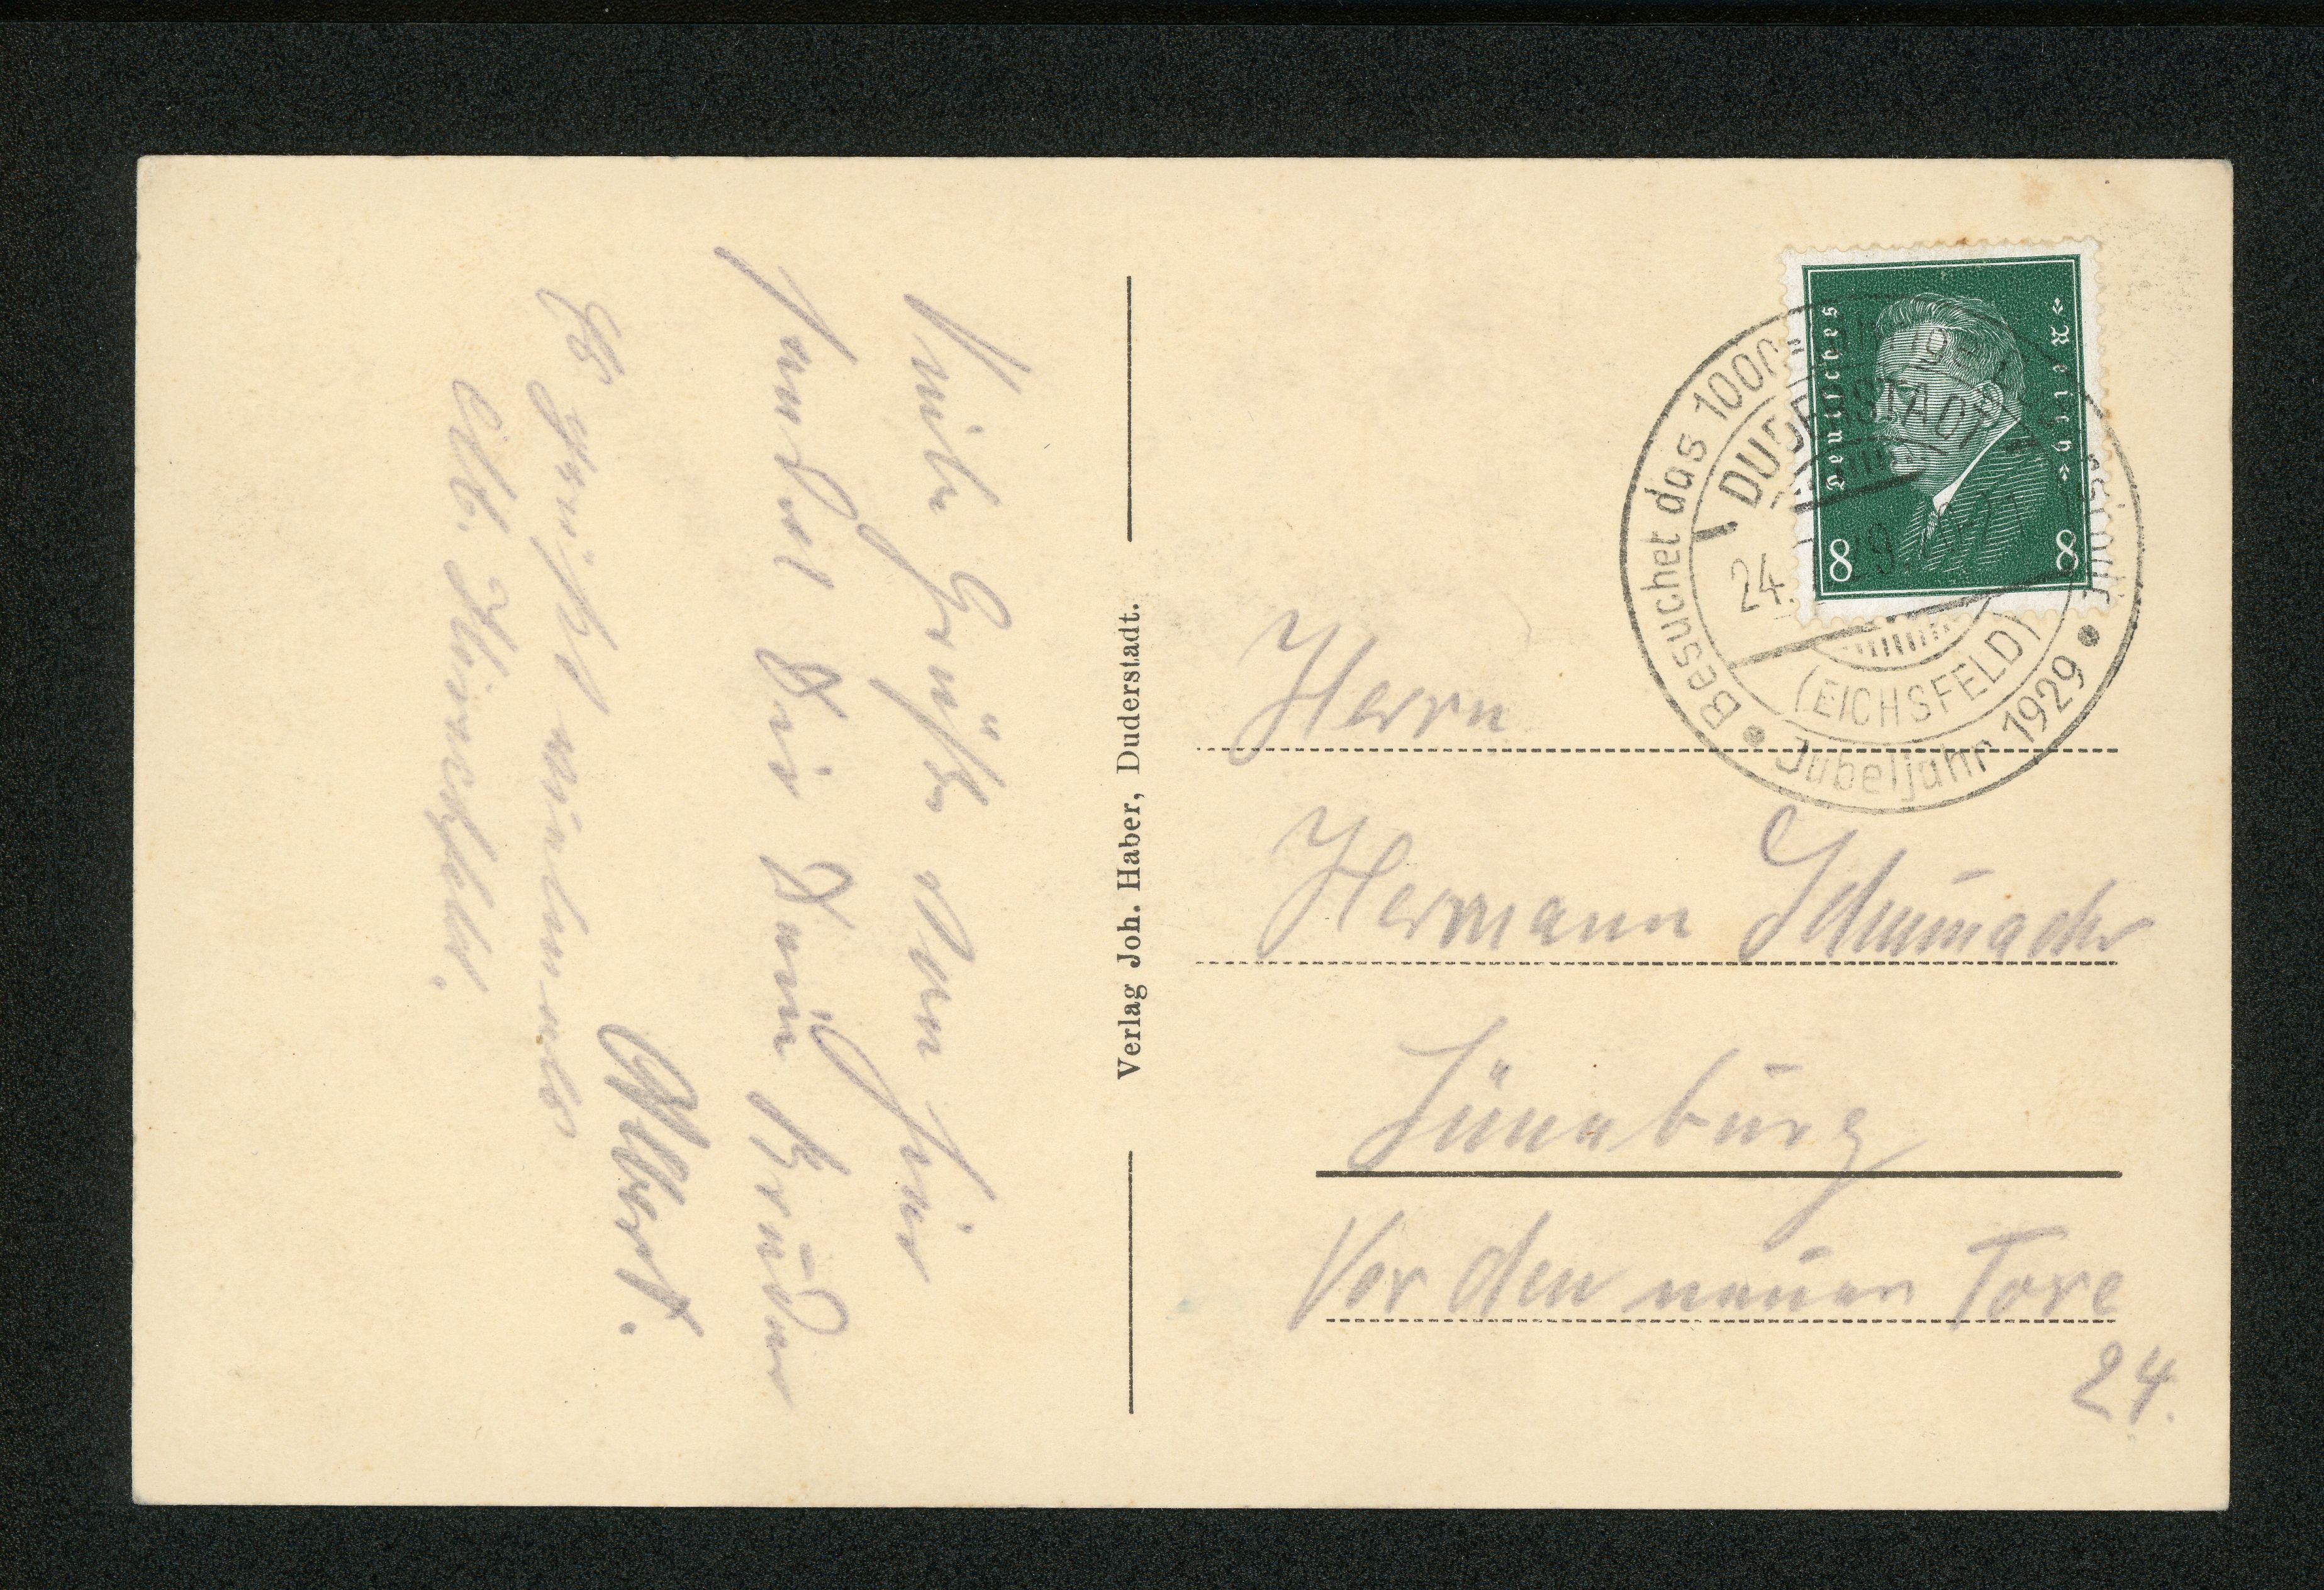 Viele Grüße von hier
sendet Dir Dein Bruder
Albert.
Es grüßt vielmals
Alb.
Verlag Joh. Haber, Duderstadt.
Deutsches Reich
8 8
Besuchet das 1000
DUDERSTADT
24.
(EICHSFELD)
Jubeljahr 1929
Herrn
Hermann Schumacher
Lüneburg
Vor den neuen Tore
24.